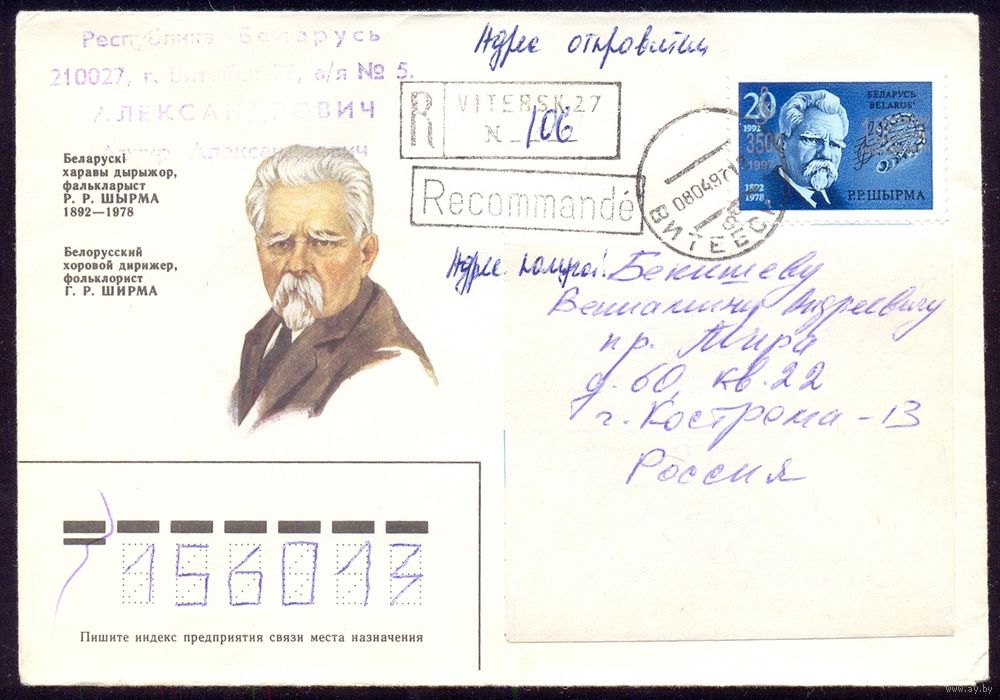 Республика Беларусь
210027, г. Витебск-27, а/я № 5.
АЛЕКСАНДРОВИЧ
Александрович
Адрес
R
VITEBSK 27
N 106
Recommandé
080497
ВИТЕБСК
20
1992
3500
1997
1892
1978
БЕЛАРУСЬ
BELARUS'
Р.Р.ШЫРМА
Беларускі
харавы дырыжор,
фалькларыст
Р. Р. ШЫРМА
1892—1978
Белорусский
хоровой дирижер,
фольклорист
Г. Р. ШИРМА
Адрес
Бекишеву
Вениамину Андреевичу
пр. Мира
д. 60, кв. 22
г. Кострома - 13
Россия
156013
Пишите индекс предприятия связи места назначения
www.ay.by